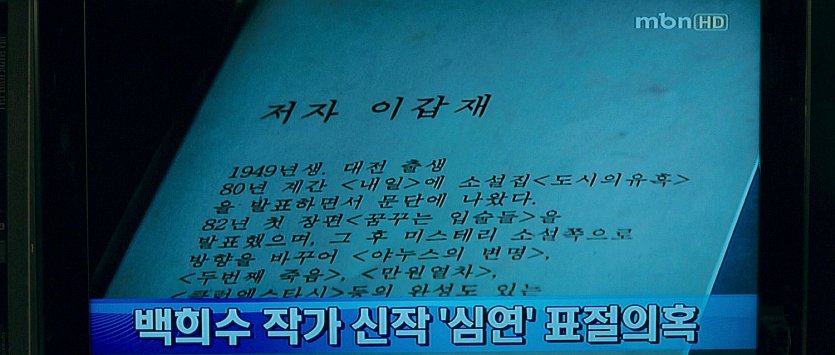 mbn HD
저자 이갑재
1949년생. 대전 출생
80년 계간 <내일>에 소설집<도시의유혹>
을 발표하면서 문단에 나왔다.
82년 첫 장편<꿈꾸는 입술들>을
발표했으며, 그 후 미스테리 소설쪽으로
방향을 바꾸어 <야누스의 변명>,
<두번째 죽음>, <만원열차>,
등의 완성도 있는
백희수 작가 신작 '심연' 표절의혹